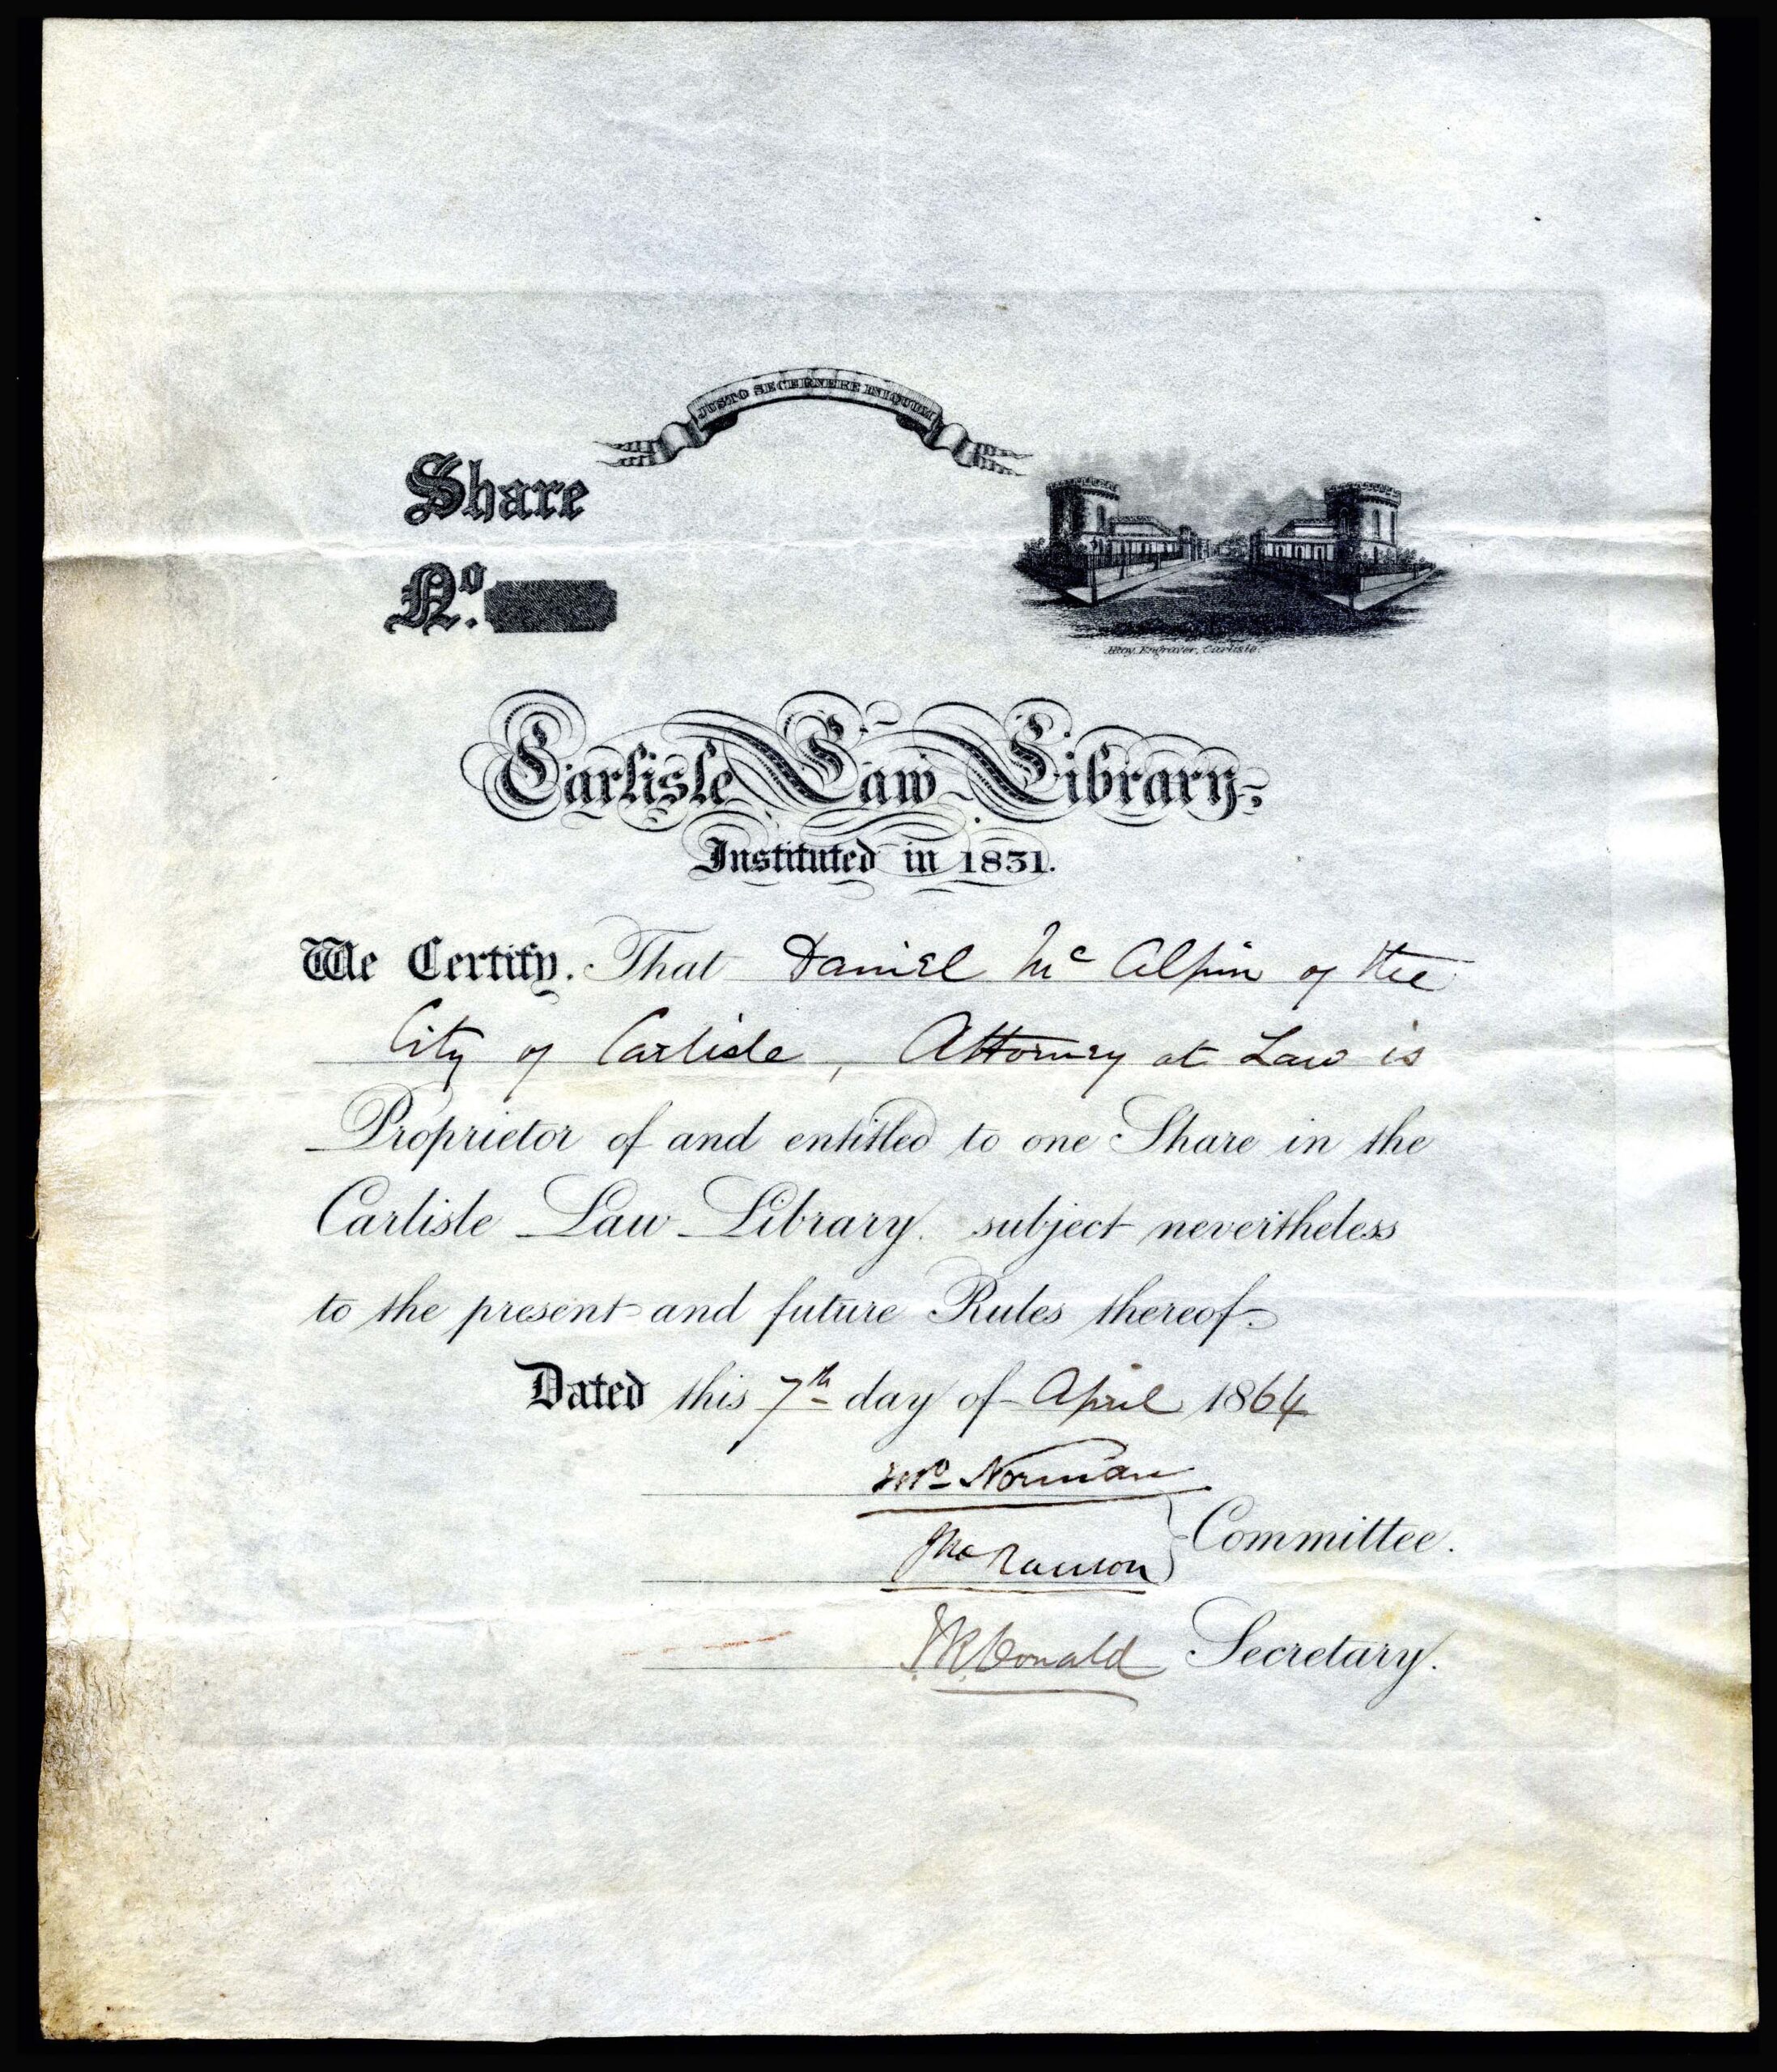 JUSTO SECERNERE INIQUUM
Share
No.
Engraver, Carlisle.
Carlisle Law Library,
Instituted in 1831.
We Certify. That Daniel Mc Alpin of the
City of Carlisle, Attorney at Law is
Proprietor of and entitled to one Share in the
Carlisle Law Library. subject nevertheless
to the present and future Rules thereof.
Dated this 7th day of April 1864
Norman
Committee.
Secretary.